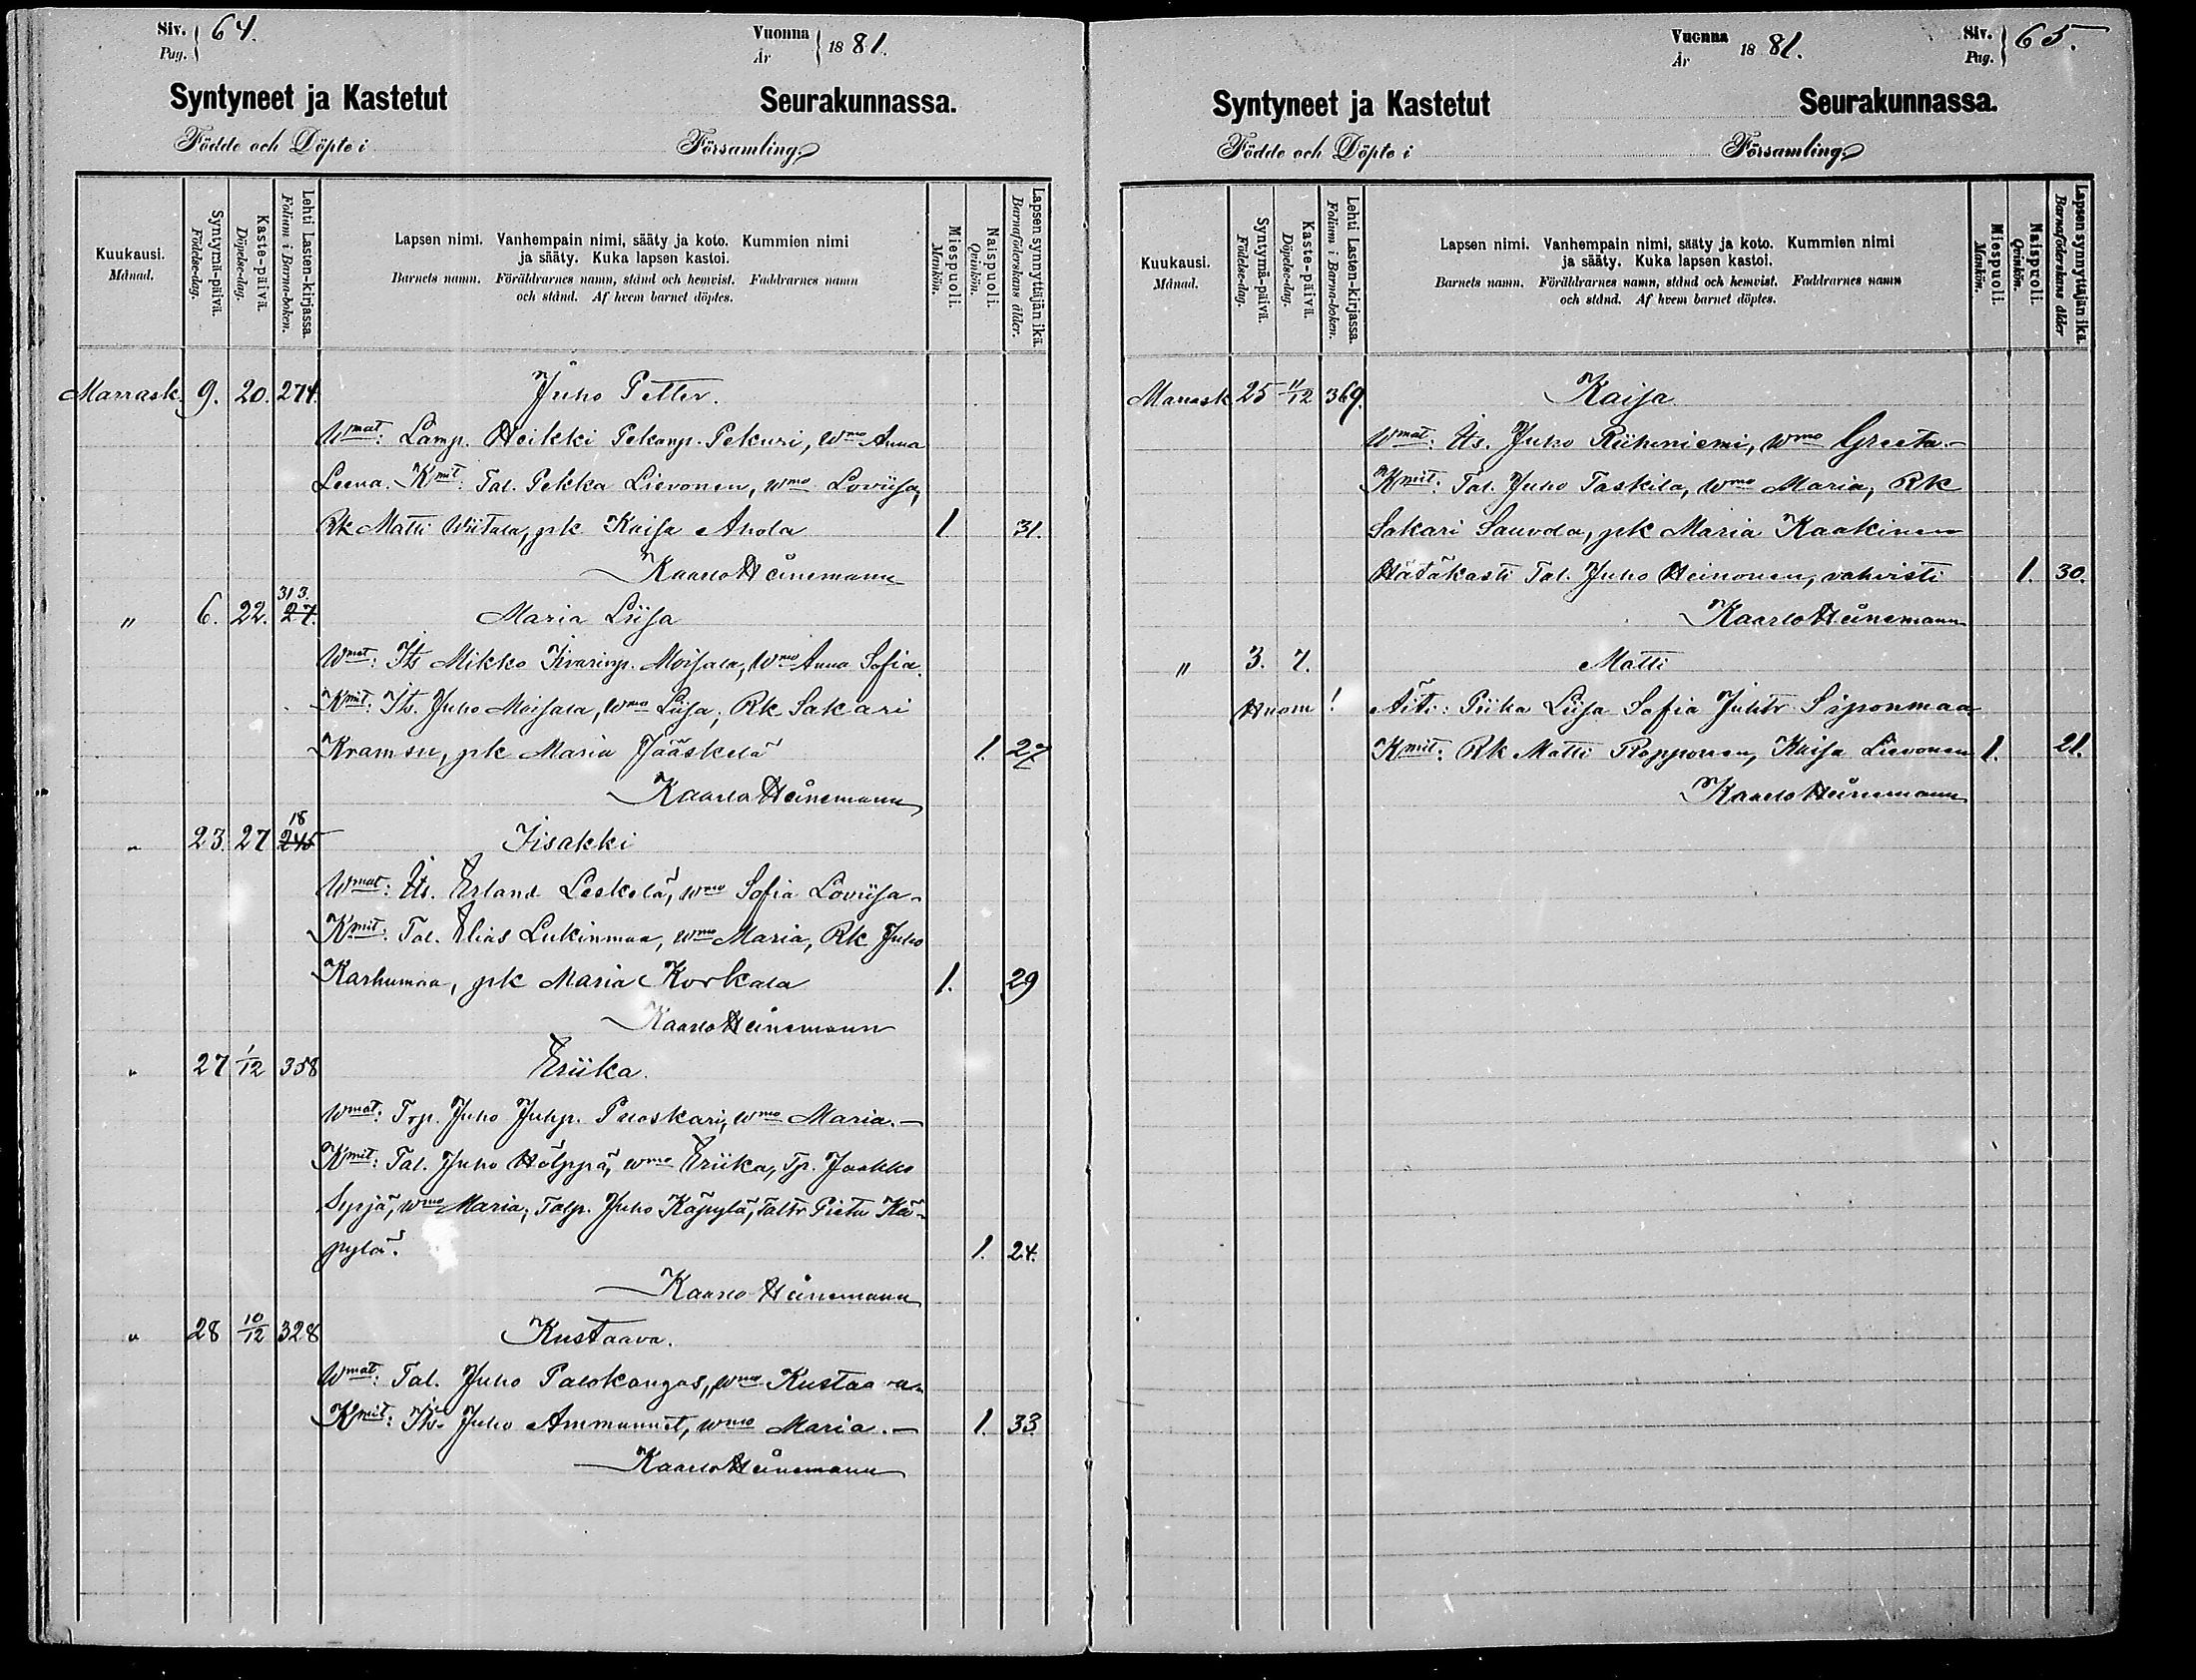 Siv. 64. Vuonna 1881.
Pag. År
Syntyneet ja Kastetut Seurakunnassa.
Födde och Döpte i Församling.
Kuukausi. Månad.
Syntymä-päivä. Födelse-dag.
Kaste-päivä. Döpelse-dag.
Lehti Lasten-kirjassa. Folium i Barna-boken.
Lapsen nimi. Vanhempain nimi, sääty ja koto. Kummien nimi
ja sääty. Kuka lapsen kastoi.
Barnets namn. Föräldrarnes namn, stånd och hemvist. Faddrarnes namn
och stånd. Af hvem barnet döptes.
Miespuoli. Mankön.
Naispuoli. Qvinkön.
Lapsen synnyttäjän ikä. Barnaföderskans ålder.
Marrask. 9. 20. 274. Juho Petter.
Wmat: Lamp. Heikki Pekanp. Pekuri, Wmo Anna
Leena. Kmit: Tal. Pekka Lievonen, wmo Loviisa,
Rk Matti Wiitala, pk Kaisa Ahola 1 31.
Kaarlo Heinemann
313.
" 6. 22. 27. Maria Liisa
Wmat: Its Mikko Iivarinp. Moisala, Wmo Anna Sofia.
Kmit: Its. Juho Moisala, wmo Liisa, Rk Sakari
Kramsu, pk Maria Jääskelä 1. 27
Kaarlo Heinemann
18
" 23. 27 245 Iisakki
Wmat: Its. Erland Leskelä, wmo Sofia Loviisa.
Kmit: Tal. Elias Lukinmaa, wmo Maria, Rk Juho
Karhumaa, pk Maria Korkala 1. 29
Kaarlo Heinemann
" 27 1/12 358 Eriika.
Wmat: Trp. Juho Juhp. Puoskari, wmo Maria.—
Kmit: Tal. Juho Hölppä, wmo Eriika, Tp. Jaakko
Syrjä, wmo Maria, Talp. Juho Käpylä, Taltr Pieta Kä-
pylä. 1. 24.
Kaarlo Heinemann
" 28 10/12 328 Kustaava.
Wmat: Tal. Juho Palokangas, wmo Kustaava
Kmit: Its. Juho Ammunnet, wmo Maria.— 1. 33.
Kaarlo Heinemann
Vuonna 1881. Siv. 65.
År Pag.
Syntyneet ja Kastetut Seurakunnassa.
Födde och Döpte i Församling.
Kuukausi. Månad.
Syntymä-päivä. Födelse-dag.
Kaste-päivä. Döpelse-dag.
Lehti Lasten-kirjassa. Folium i Barna-boken.
Lapsen nimi. Vanhempain nimi, sääty ja koto. Kummien nimi
ja sääty. Kuka lapsen kastoi.
Barnets namn. Föräldrarnes namn, stånd och hemvist. Faddrarnes namn
och stånd. Af hvem barnet döptes.
Miespuoli. Mankön.
Naispuoli. Qvinkön.
Lapsen synnyttäjän ikä. Barnaföderskans ålder
Marrask 25 11/12 369. Kaisa
Wmat: Its. Juho Riihiniemi, wmo Greeta.—
Kmit: Tal. Juho Taskila, wmo Maria, Rk
Sakari Sauvola, pk Maria Kaakinen
Hätäkasti Tal. Juho Heinonen, vahvisti 1. 30.
Kaarlo Heinemann
" 3. 7. Matti
Huom! Äiti: Piika Liisa Sofia Juhtr Siponmaa
Kmit: Rk Matti Ropponen, Kaisa Lievonen 1. 21.
Kaarlo Heinemann